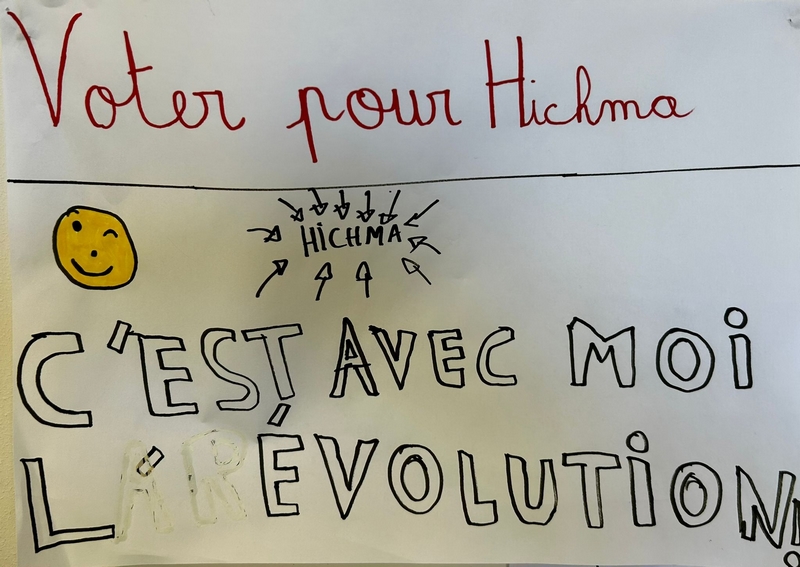 Voter pour Hichma
HiCHMA
C'EST AVEC MOi
LÁRÉVOLUTiON!